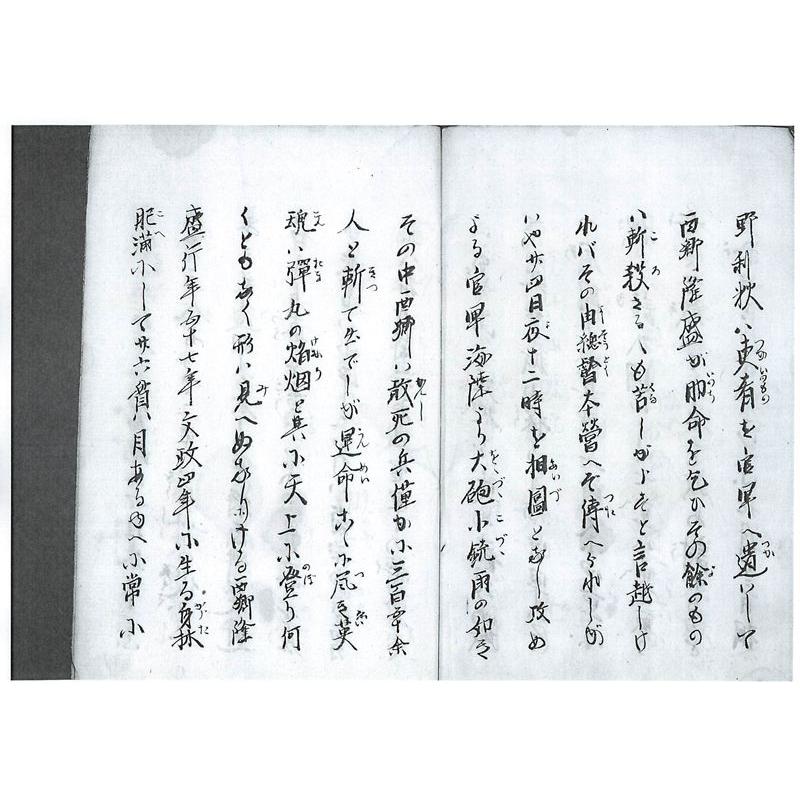 野利秋ハ吏有を官軍へ遣ハして
西郷隆盛が助命を乞ひその餘のもの
ハ斬殺さるゝも苦しからずと言越しけ
れバその由総督本營へぞ傳へられしが
いや廿四日夜十二時を相圖となし攻め
よる官軍海陸より大砲小銃雨の如き
その中西郷ハ散死の兵僅かに三百余
人と斬て出でしが運命こゝに尽き英
魂ハ彈丸の焰烟と共に天上に登り何
くともなく形ハ見へぬなりにける西郷隆
盛行年五十七年文政四年に生る身体
肥満にして廿六貫目あるゆへに常に